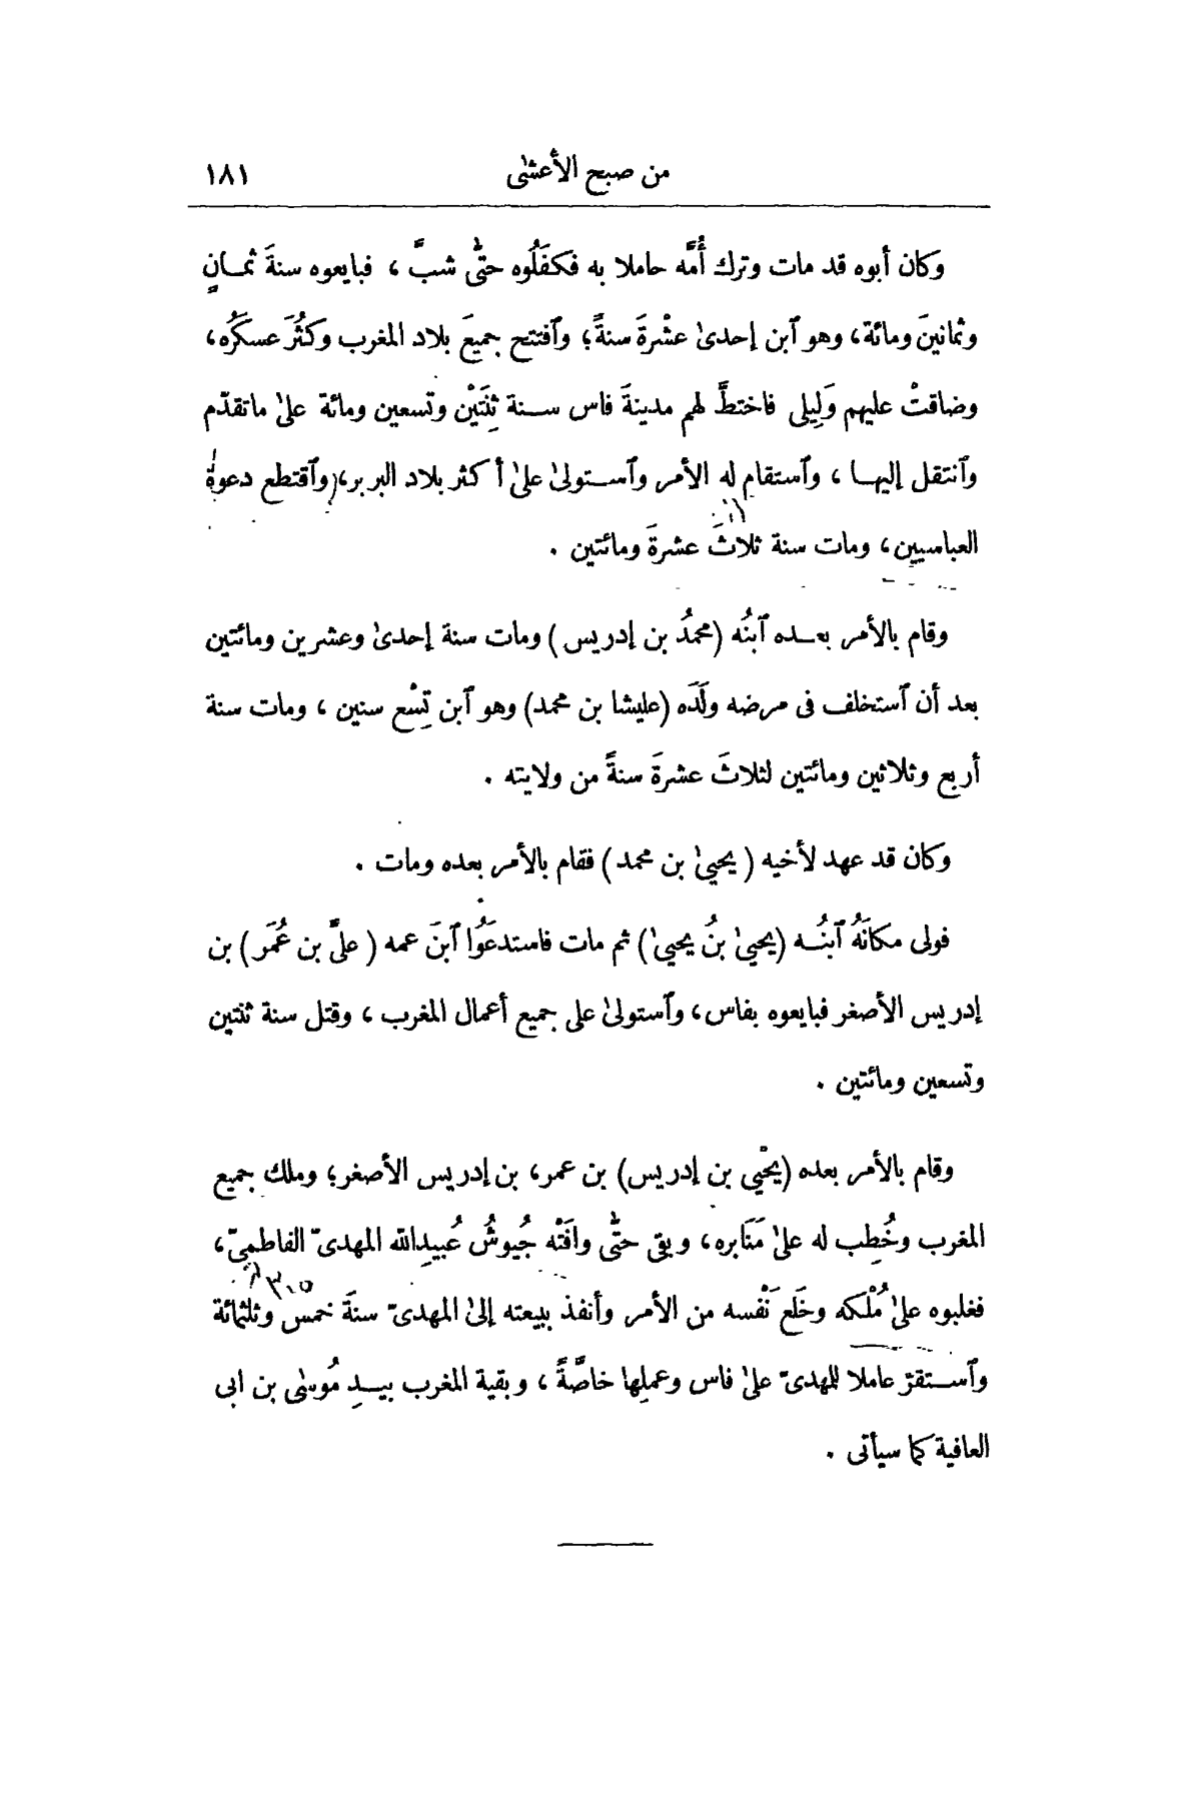 من صبح الأعشىٰ ١٨١
وكان أبوه قد مات وترك أُمَّه حاملا به فكفَلُوه حتَّى شبَّ ، فبايعوه سنةَ ثمــانٍ
وثمانينَ ومائة، وهو ٱبن إحدىٰ عشْرةَ سنةً؛ وٱفتتح جميعَ بلاد المغرب وكثُرَ عسكَرُه،
وضاقتْ عليهم وَلِيلى فاختطَّ لهم مدينةَ فاس ســنة ثِنَتَيْن وتسعين ومائة علىٰ ماتقدّم
وٱنتقل إليهــا ، وٱستقام له الأمر وٱســتولىٰ علىٰ أكثر بلاد البربر، وٱقتطع دعوة
العباسيين، ومات سنة ثلاثَ عشرةَ ومائتين .
وقام بالأمر بعــده ٱبنُه (محمدُ بن إدريس) ومات سنة إحدىٰ وعشرين ومائتين
بعد أن ٱستخلف فى مرضه ولَدَه (عليشا بن محمد) وهو ٱبن تِسْع سنين ، ومات سنة
أربع وثلاثين ومائتين لثلاثَ عشرةَ سنةً من ولايته .
وكان قد عهد لأخيه ( يحيىٰ بن محمد ) فقام بالأمر بعده ومات .
فولى مكانَهُ ٱبنُــه (يحيىٰ بنُ يحيىٰ) ثم مات فاستدعَوُا ٱبنَ عمه ( علىَّ بن عُمَر ) بن
إدريس الأصغر فبايعوه بفاس، وٱستولىٰ على جميع أعمال المغرب ، وقتل سنة ثنتين
وتسعين ومائتين .
وقام بالأمر بعده (يحْيٰى بن إدريس) بن عمر، بن إدريس الأصغر؛ وملك جميع
المغرب وخُطِب له علىٰ مَنَابره، وبقى حتَّى وافَتْه جُيوشُ عُبيدِالله المهدىّ الفاطمِىّ،
٣٠٥
فغلبوه علىٰ مُلْكه وخَلَع نَفْسه من الأمر وأنفذ بيعته إلىٰ المهدىّ سنةَ خمس وثلثمائة
وٱســتقرّ عاملا للمهدىّ علىٰ فاس وعملِها خاصَّةً ، وبقية المغرب بيــدِ مُوسٰى بن ابى
العافية كما سيأتى .